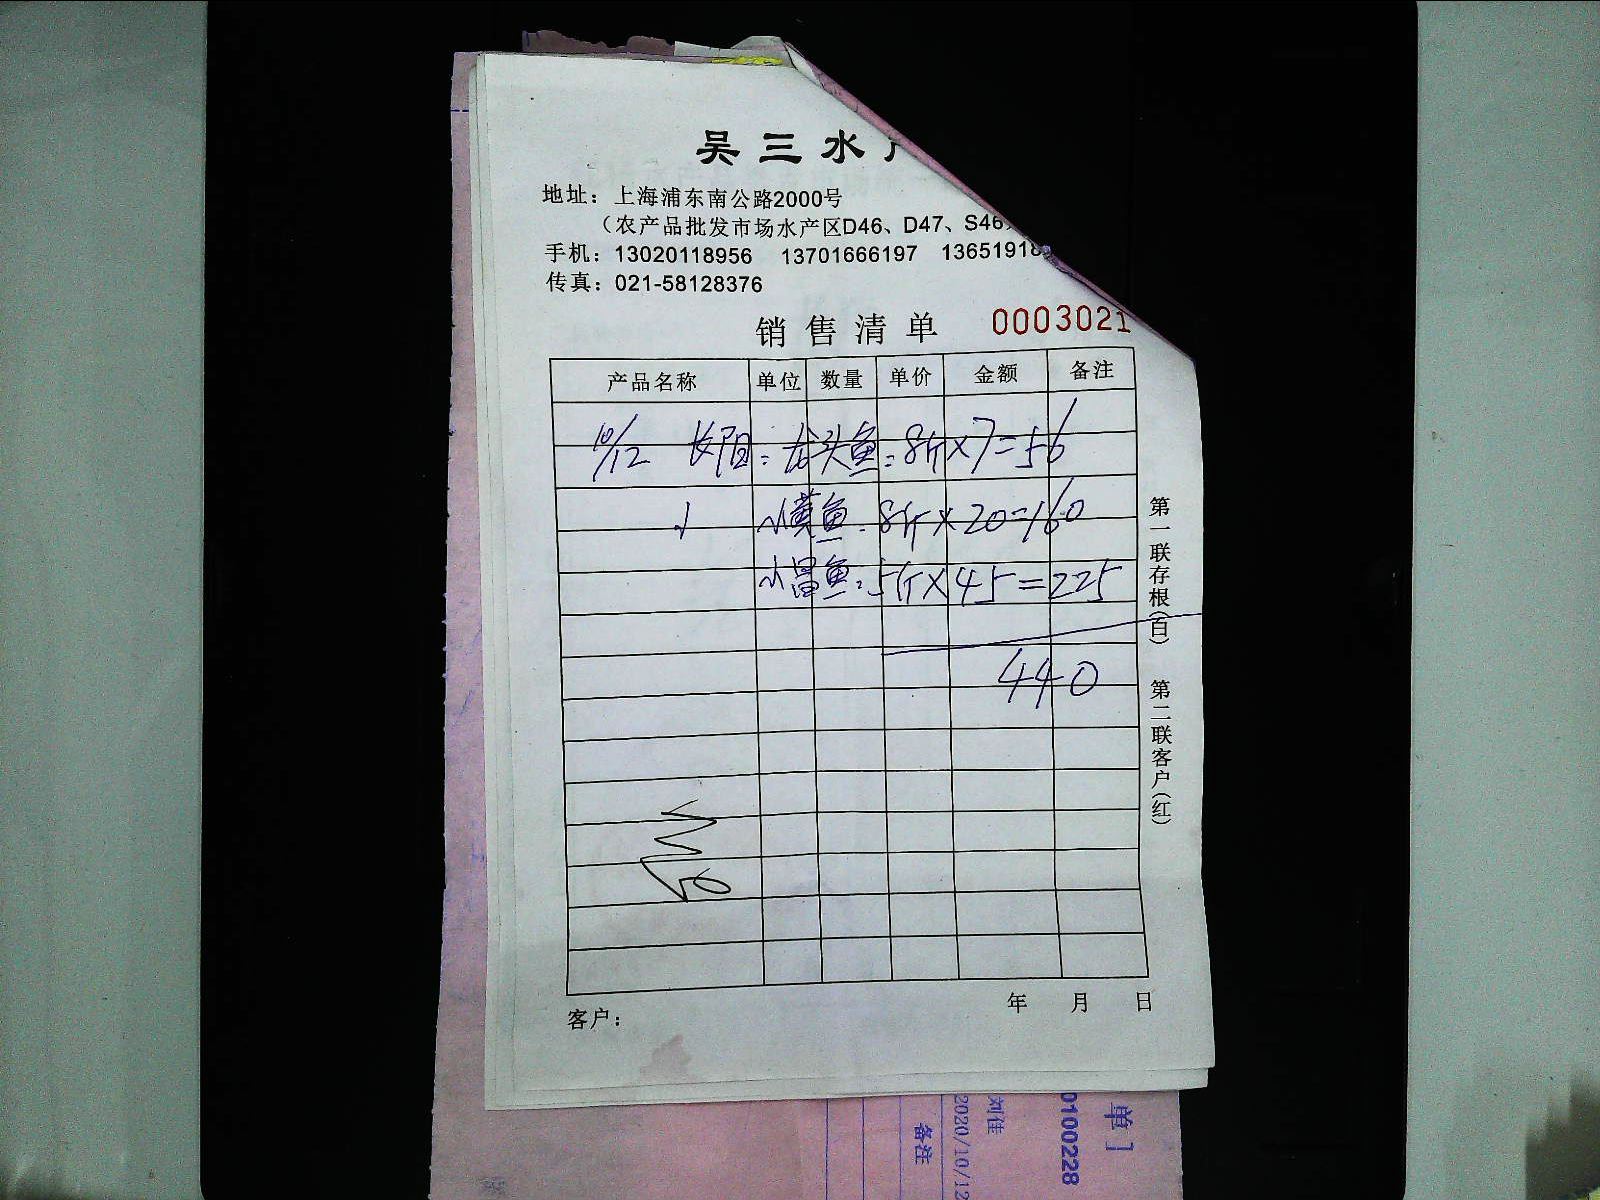 吴三水
地址：上海浦东南公路2000号
（农产品批发市场水产区D46、D47、S46
手机：13020118956 13701666197 1365191
传真：021-58128376
销售清单 0003021
产品名称 单位 数量 单价 金额 备注
10/12 长阳：龙头鱼：8斤×7=56
小黄鱼：8斤×20=160
小昌鱼：5斤×45=225
440
第一联存根(白) 第二联客户(红)
年 月 日
客户：
单】
0100228
刘佳
2020/10/12
备注